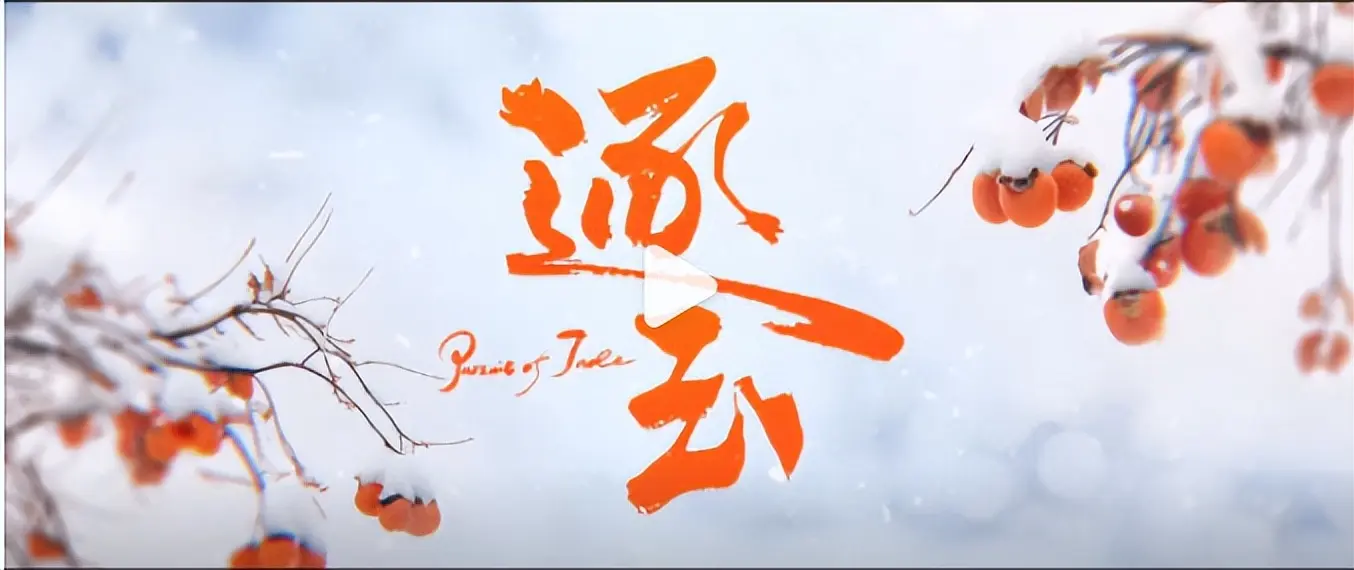 逐玉
Pursuit of Jade